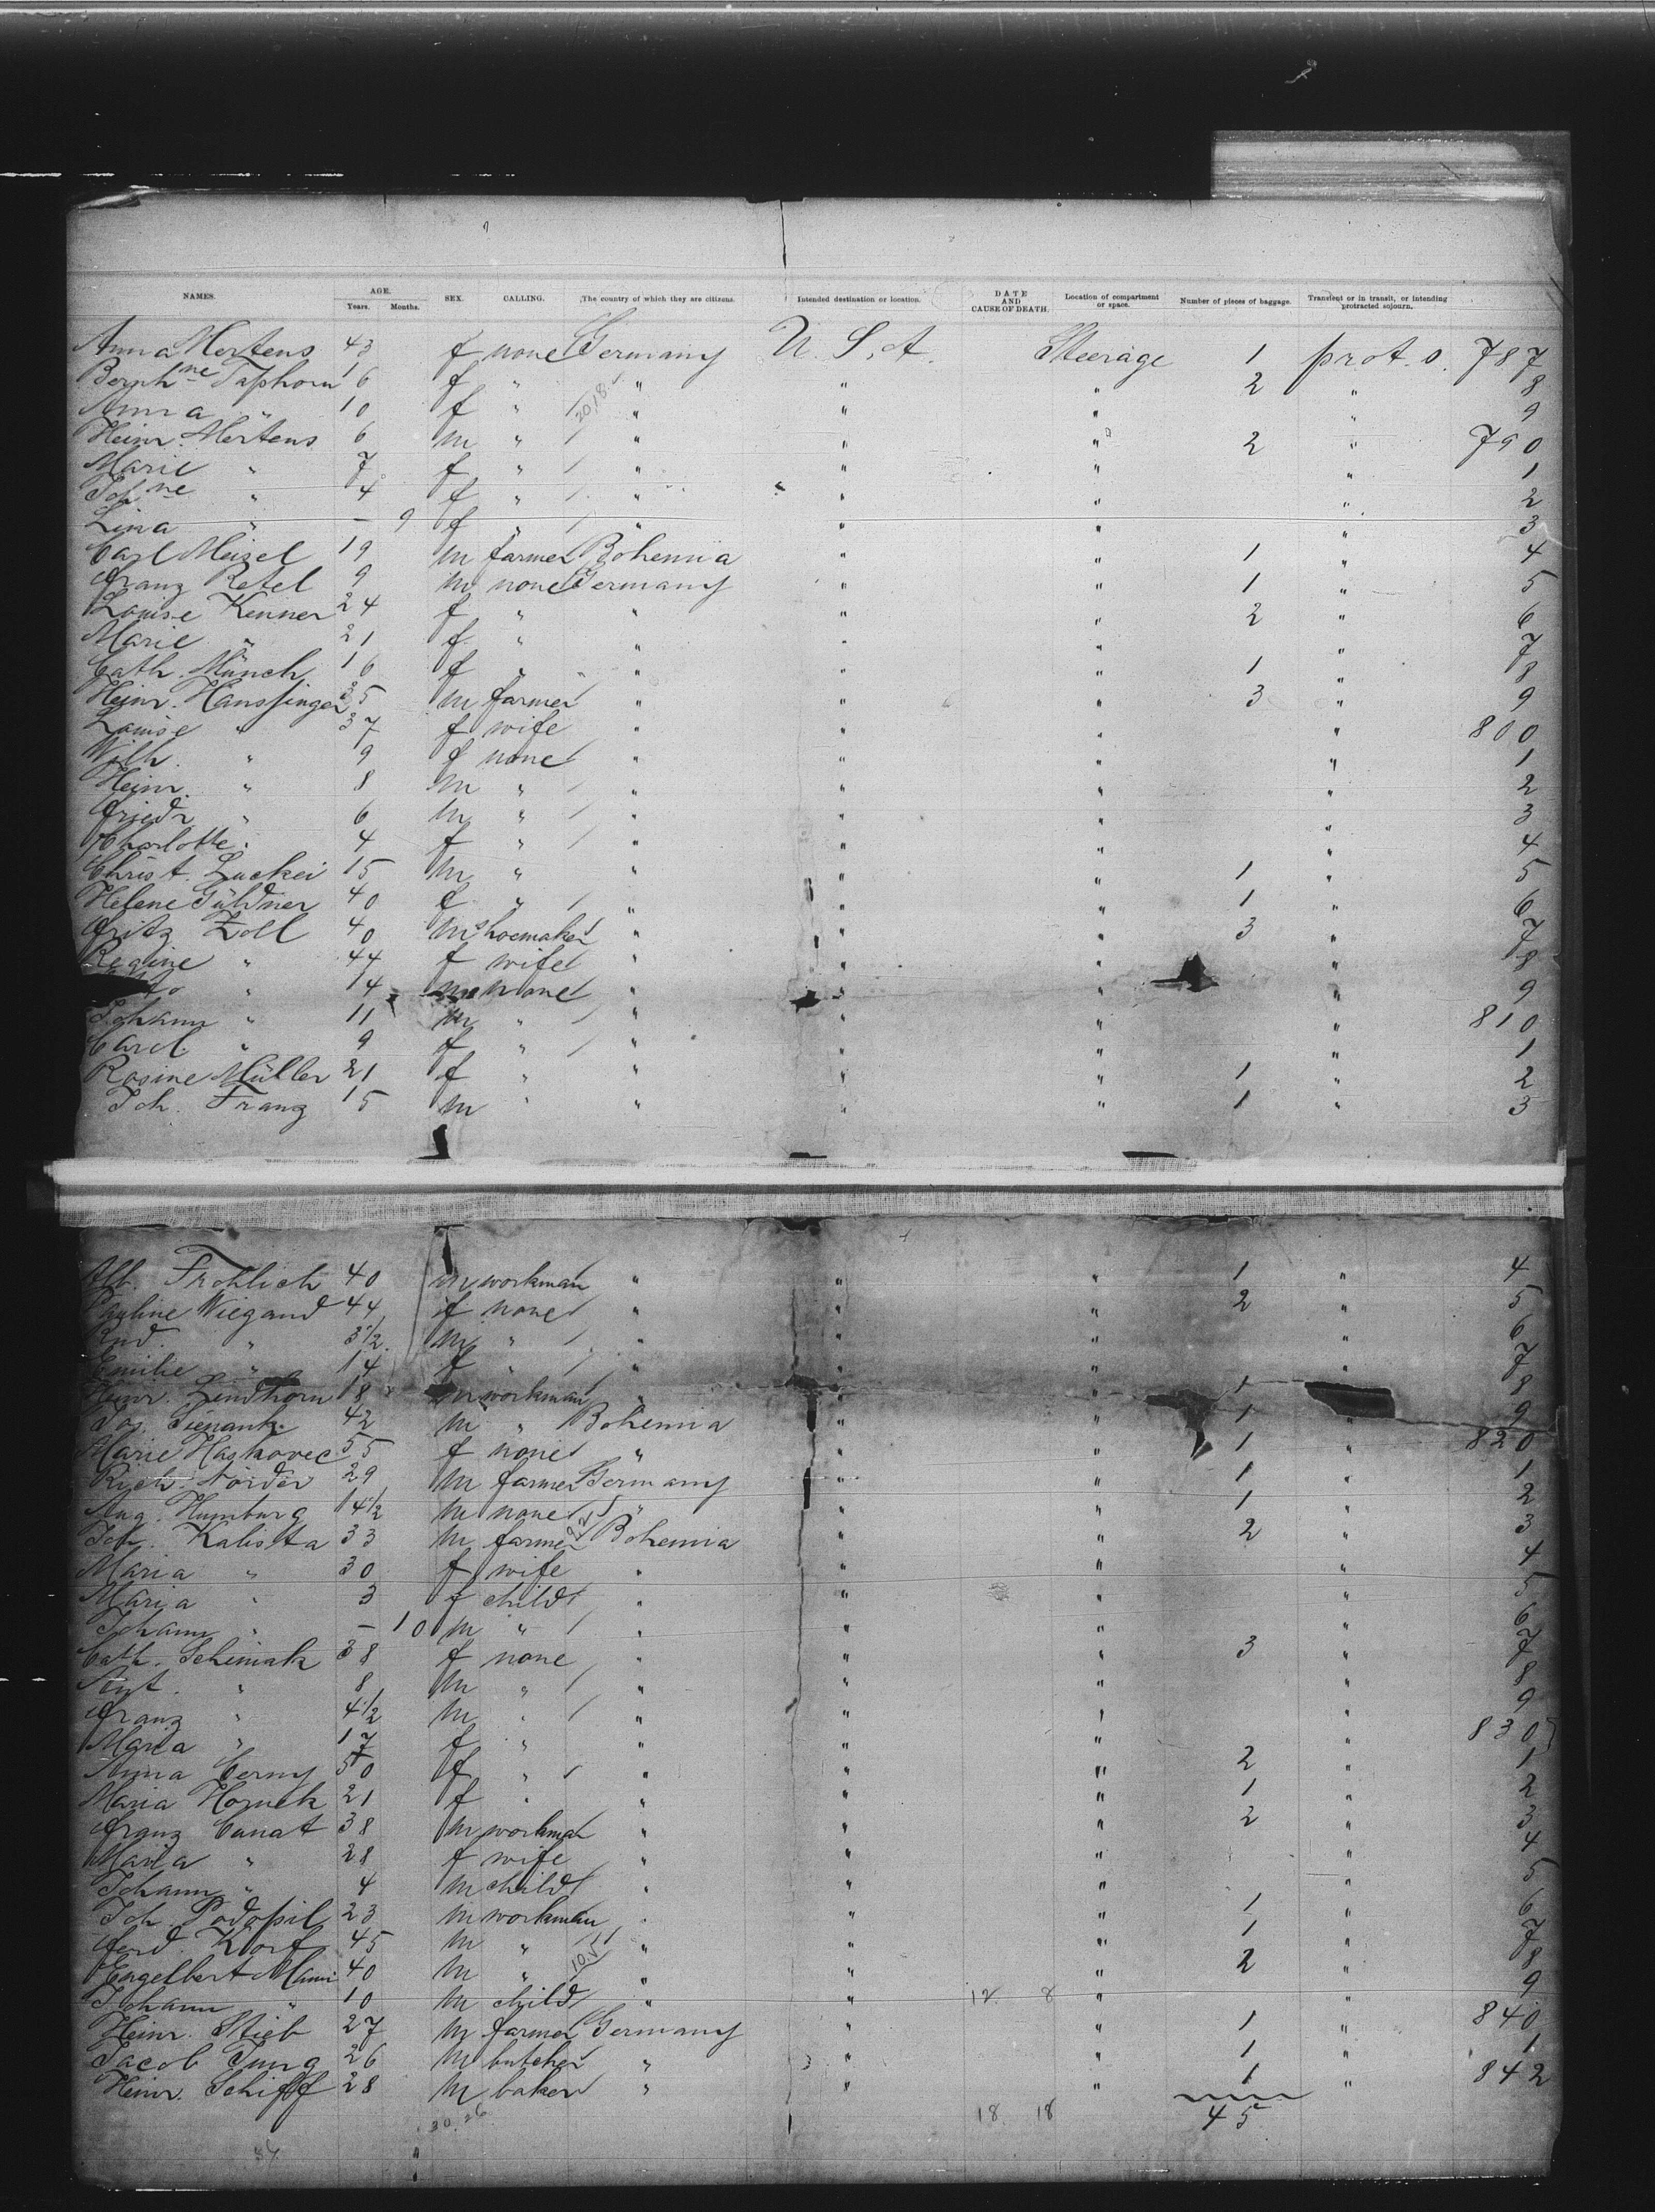 NAMES. AGE. Years. Months. SEX. CALLING. The country of which they are citizens. Intended destination or location. DATE AND CAUSE OF DEATH. Location of compartment or space. Number of pieces of baggage. Transient or in transit, or intending protracted sojourn.
Anna Mertens 43 f none Germany U. S. A. Steerage 1 prot. s. 787
Bernh ne Taphorn 16 f " " " " 2 " 8
Anna " 10 f " " " " " 9
Heinr. Mertens 6 m " " " " 2 " 790
Marie " 7 f " " " " " 1
Joh ne " 4 f " " " " " 2
Lina " – 9 f " " " " " 3
Carl Meizel 19 m farmer Bohemia " " 1 " 4
Franz Retel 9 m none Germany " " 1 " 5
Louise Kenner 24 f " " " " 2 " 6
Marie " 21 f " " " " " 7
Cath. Münch 16 f " " " " 1 " 8
Heinr. Hanssinger 35 m farmer " " " 3 " 9
Louise " 37 f wife " " " " 800
Wilh. " 9 f none " " " " 1
Heinr. " 8 m " " " " " 2
Friedr " 6 m " " " " " 3
Charlotte " 4 f " " " " " 4
Christ. Luckei 15 m " " " " 1 " 5
Helene Güldner 40 f " " " " 1 " 6
Fritz Zoll 40 m shoemaker " " " 3 " 7
Regine " 44 f wife " " " " 8
" 14 m none " " " " 9
Johann " 11 m " " " " " 810
Carol. " 9 f " " " " " 1
Rosine Müller 21 f " " " " 1 " 2
Joh. Franz 15 m " " " " 1 " 3
Alb. Frohlich 40 m workman " " " 1 " 4
Pauline Wiegand 44 f none " " " 2 " 5
Rud. " 3 1/2 m " " " " " 6
Emilie " 14 f " " " " " 7
Heinr. Lindhorn 18 m workman " " " 1 8
Jos. 42 m " Bohemia " " 1 " 9
Marie Haskovec 55 f none " " " 1 " 820
Rich. Nöider 29 m farmer Germany " " 1 " 1
Aug. Humburg 14 1/2 m none " " " 1 " 2
Joh. Kalista 33 m farmer Bohemia " " 2 " 3
Maria " 30 f wife " " " " 4
Maria " 3 f child " " " " 5
Johann " – 10 m " " " " " 6
Cath. Schimak 38 f none " " " 3 " 7
Ant. " 8 m " " " " " 8
Franz " 4 1/2 m " " " " " 9
Maria " 17 f " " " " " 830
Anna Cerny 50 f " " " " 2 " 1
Maria Hornek 21 f " " " " 1 " 2
Franz Canat 38 m workman " " " 2 " 3
Maria " 28 f wife " " " " 4
Johann " 4 m child " " " " 5
Joh. Podopil 23 m workman " " " 1 " 6
Ferd. Korf 45 m " " " " 1 " 7
Engelbert 40 m " " " " 2 " 8
Johann " 10 m child " " 12. 8 " " 9
Heinr. Stieb 27 m farmer Germany " " 1 " 840
Jacob Jung 26 m butcher " " " 1 " 1
Heinr. Schiff 28 m baker " " " 1 " 842
30. 26 18. 18 45
34